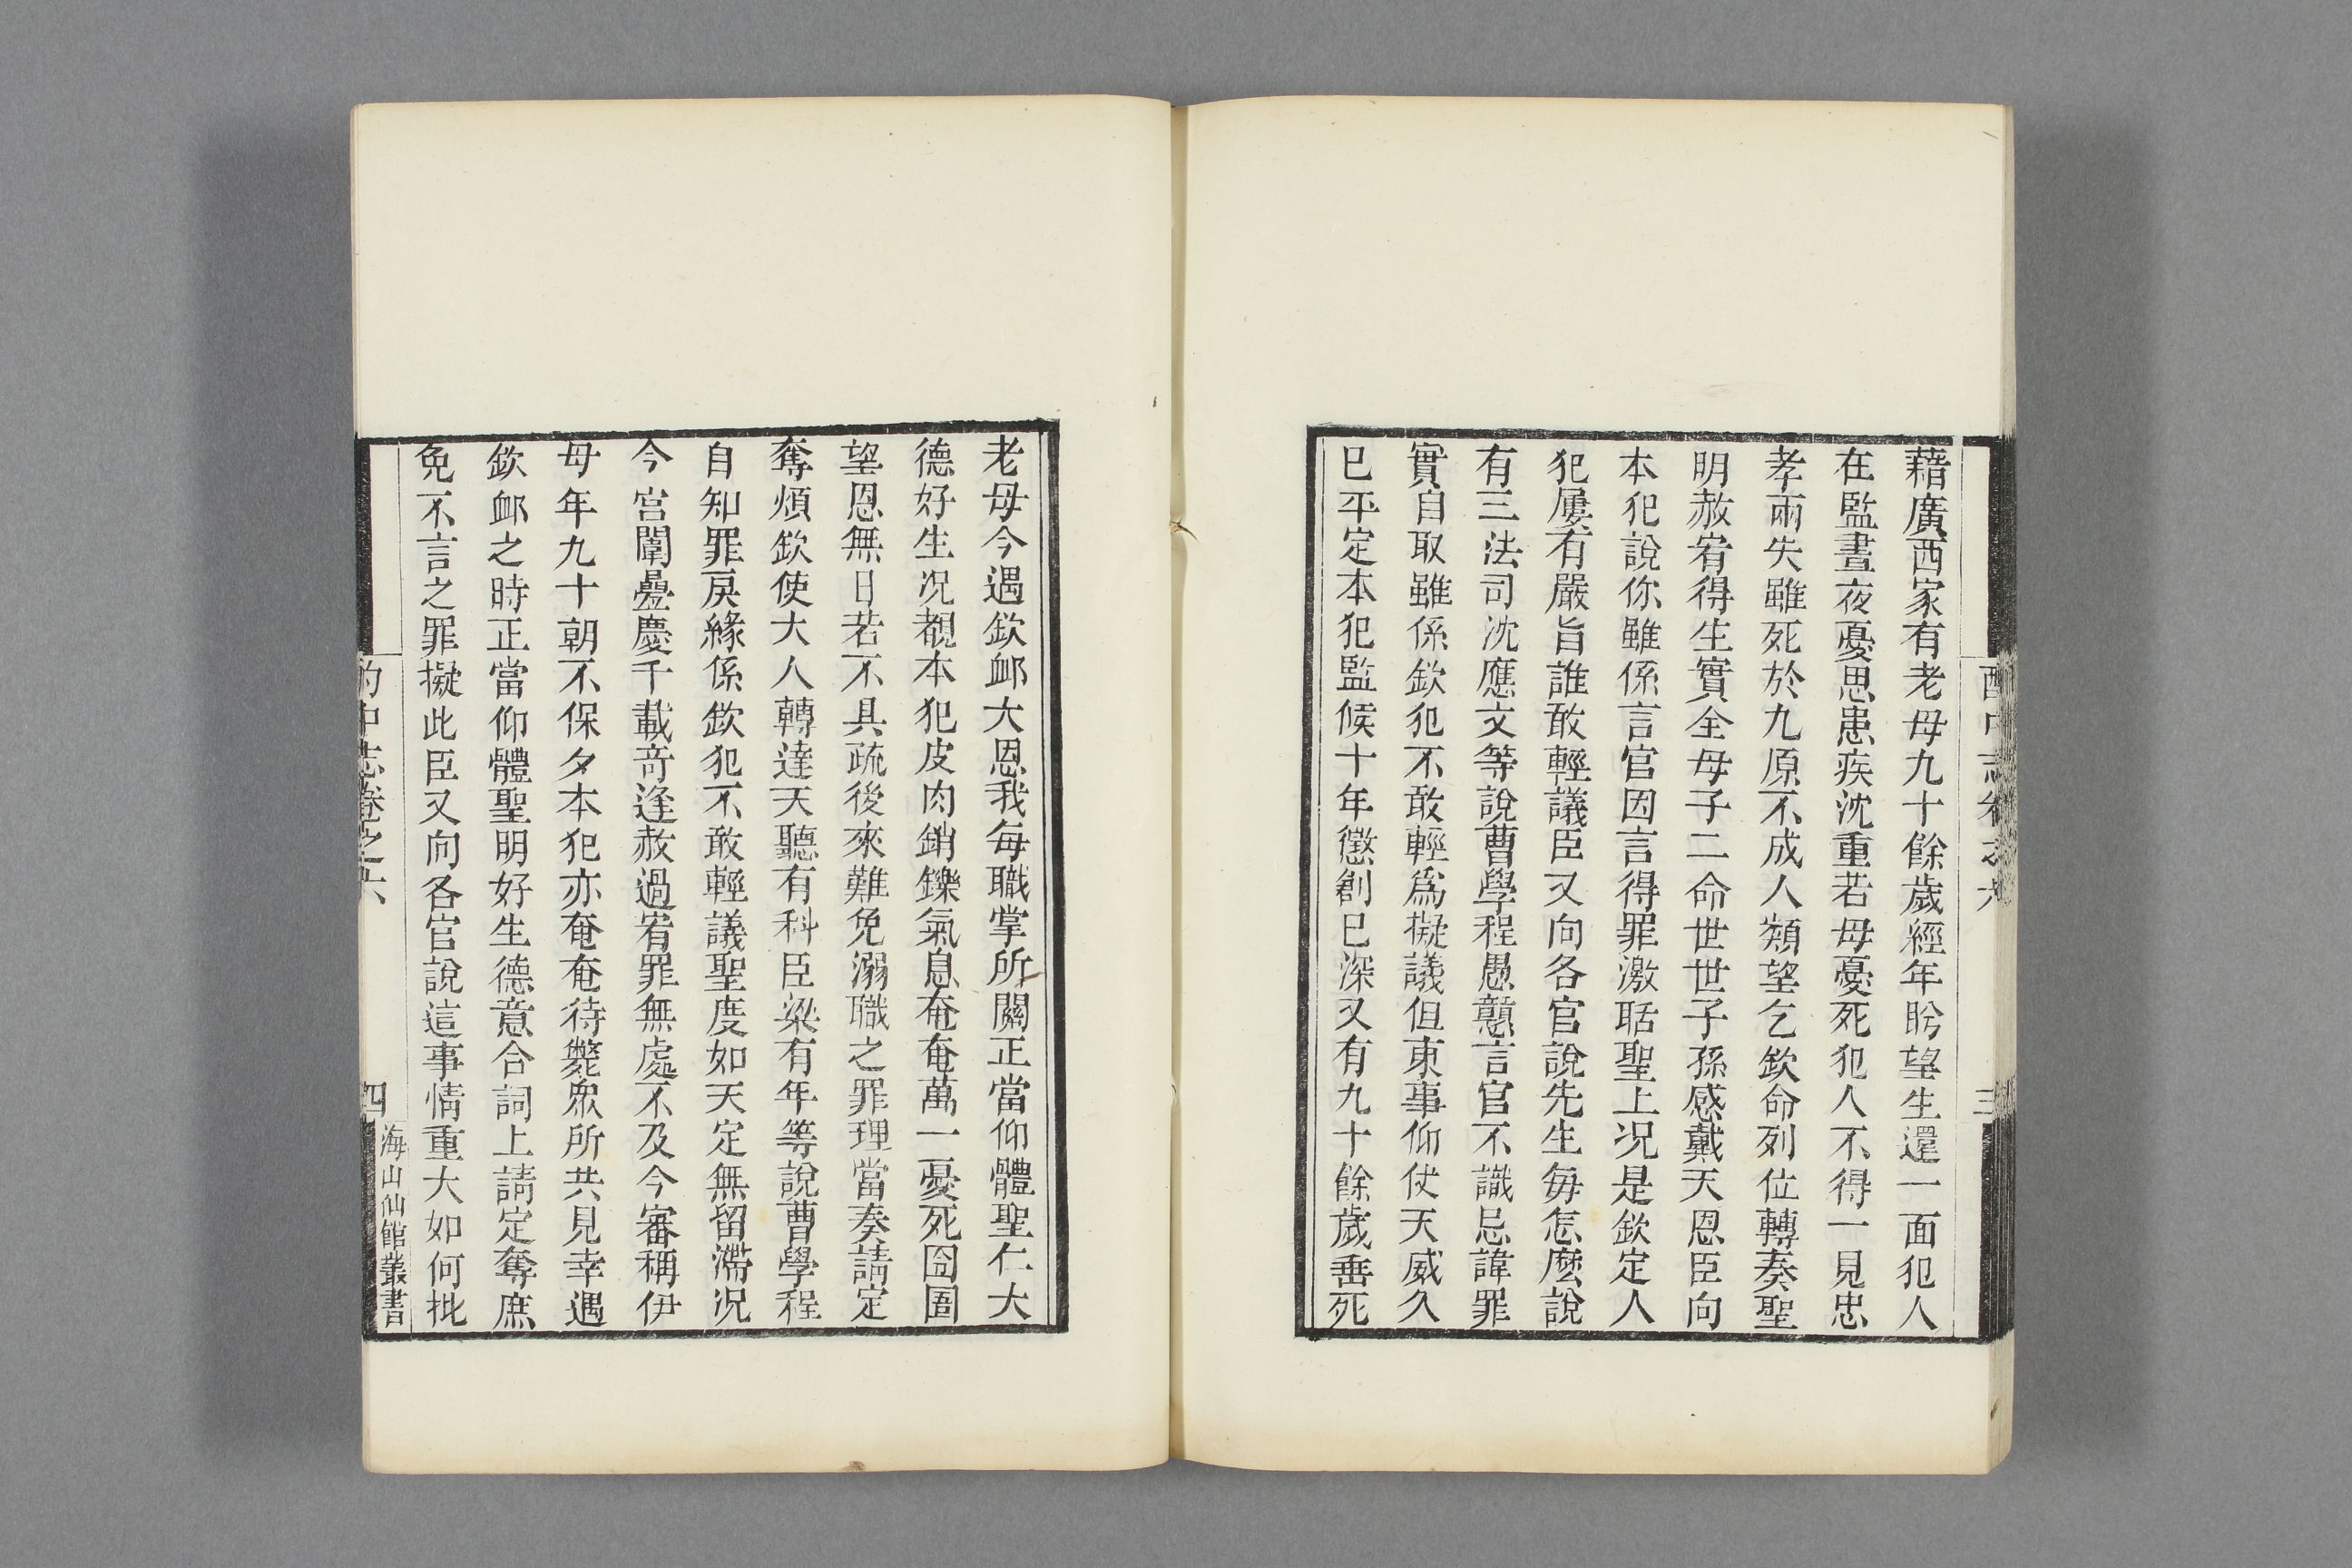 藉廣西家有老母九十餘歲經年盻望生還一面犯人
在監晝夜憂思患疾沈重若母憂死犯人不得一見忠
孝兩失雖死於九原不成人類望乞欽命列位轉奏聖
明赦宥得生實全母子二命世世子孫感戴天恩臣向
本犯說你雖係言官因言得罪激聒聖上况是欽定人
犯屢有嚴旨誰敢輕議臣又向各官說先生每怎麽說
有三法司沈應文等說曹學程愚戇言官不識忌諱罪
實自取雖係欽犯不敢輕爲擬議但東事仰仗天威久
巳平定本犯監候十年懲創巳深又有九十餘歲垂死
老母今遇欽䘏大恩我每職掌所關正當仰體聖仁大
德好生况覩本犯皮肉銷鑠氣息奄奄萬一憂死囹圄
望恩無日若不具疏後來難免溺職之罪理當奏請定
奪煩欽使大人轉達天聽有科臣梁有年等說曹學程
自知罪戾緣係欽犯不敢輕議聖度如天定無留滯况
今宮闈疊慶千載竒逢赦過宥罪無處不及今審稱伊
母年九十朝不保夕本犯亦奄奄待斃衆所共見幸遇
欽䘏之時正當仰體聖明好生德意合詞上請定奪庶
免不言之罪擬此臣又向各官說這事情重大如何批
酌中志卷之六
四
海山仙館叢書